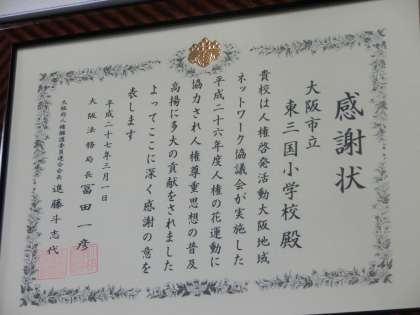 感謝状
大阪市立
東三国小学校 殿
貴校は人権啓発活動大阪地域
ネットワーク協議会が実施した
平成二十六年度人権の花運動に
協力され人権尊重思想の普及
高揚に多大の貢献をされました
よってここに深く感謝の意を
表します
平成二十七年三月一日
大阪法務局長 冨田一彦
大阪府人権擁護委員連合会長 進藤斗志代